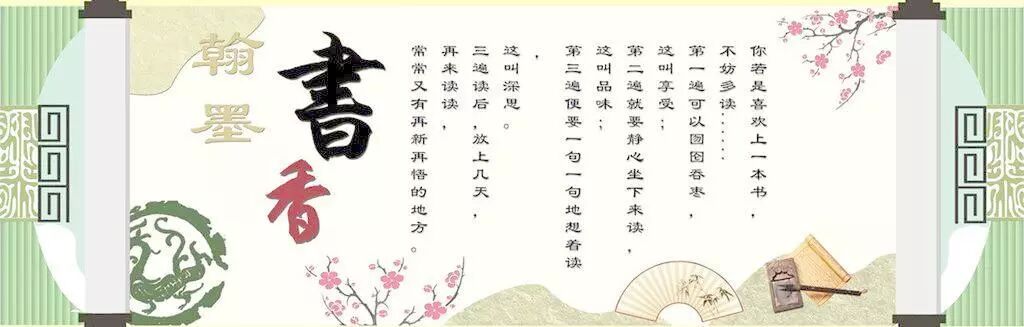 你若是喜欢上一本书，
不妨多读......
第一遍可以囫囵吞枣，
这叫享受；
第二遍就要静心坐下来读，
这叫品味；
第三遍便要一句一句地想着读
，
这叫深思。
三遍读后，放上几天，
再来读读，
常常又有再新再悟的地方。
書香
翰墨